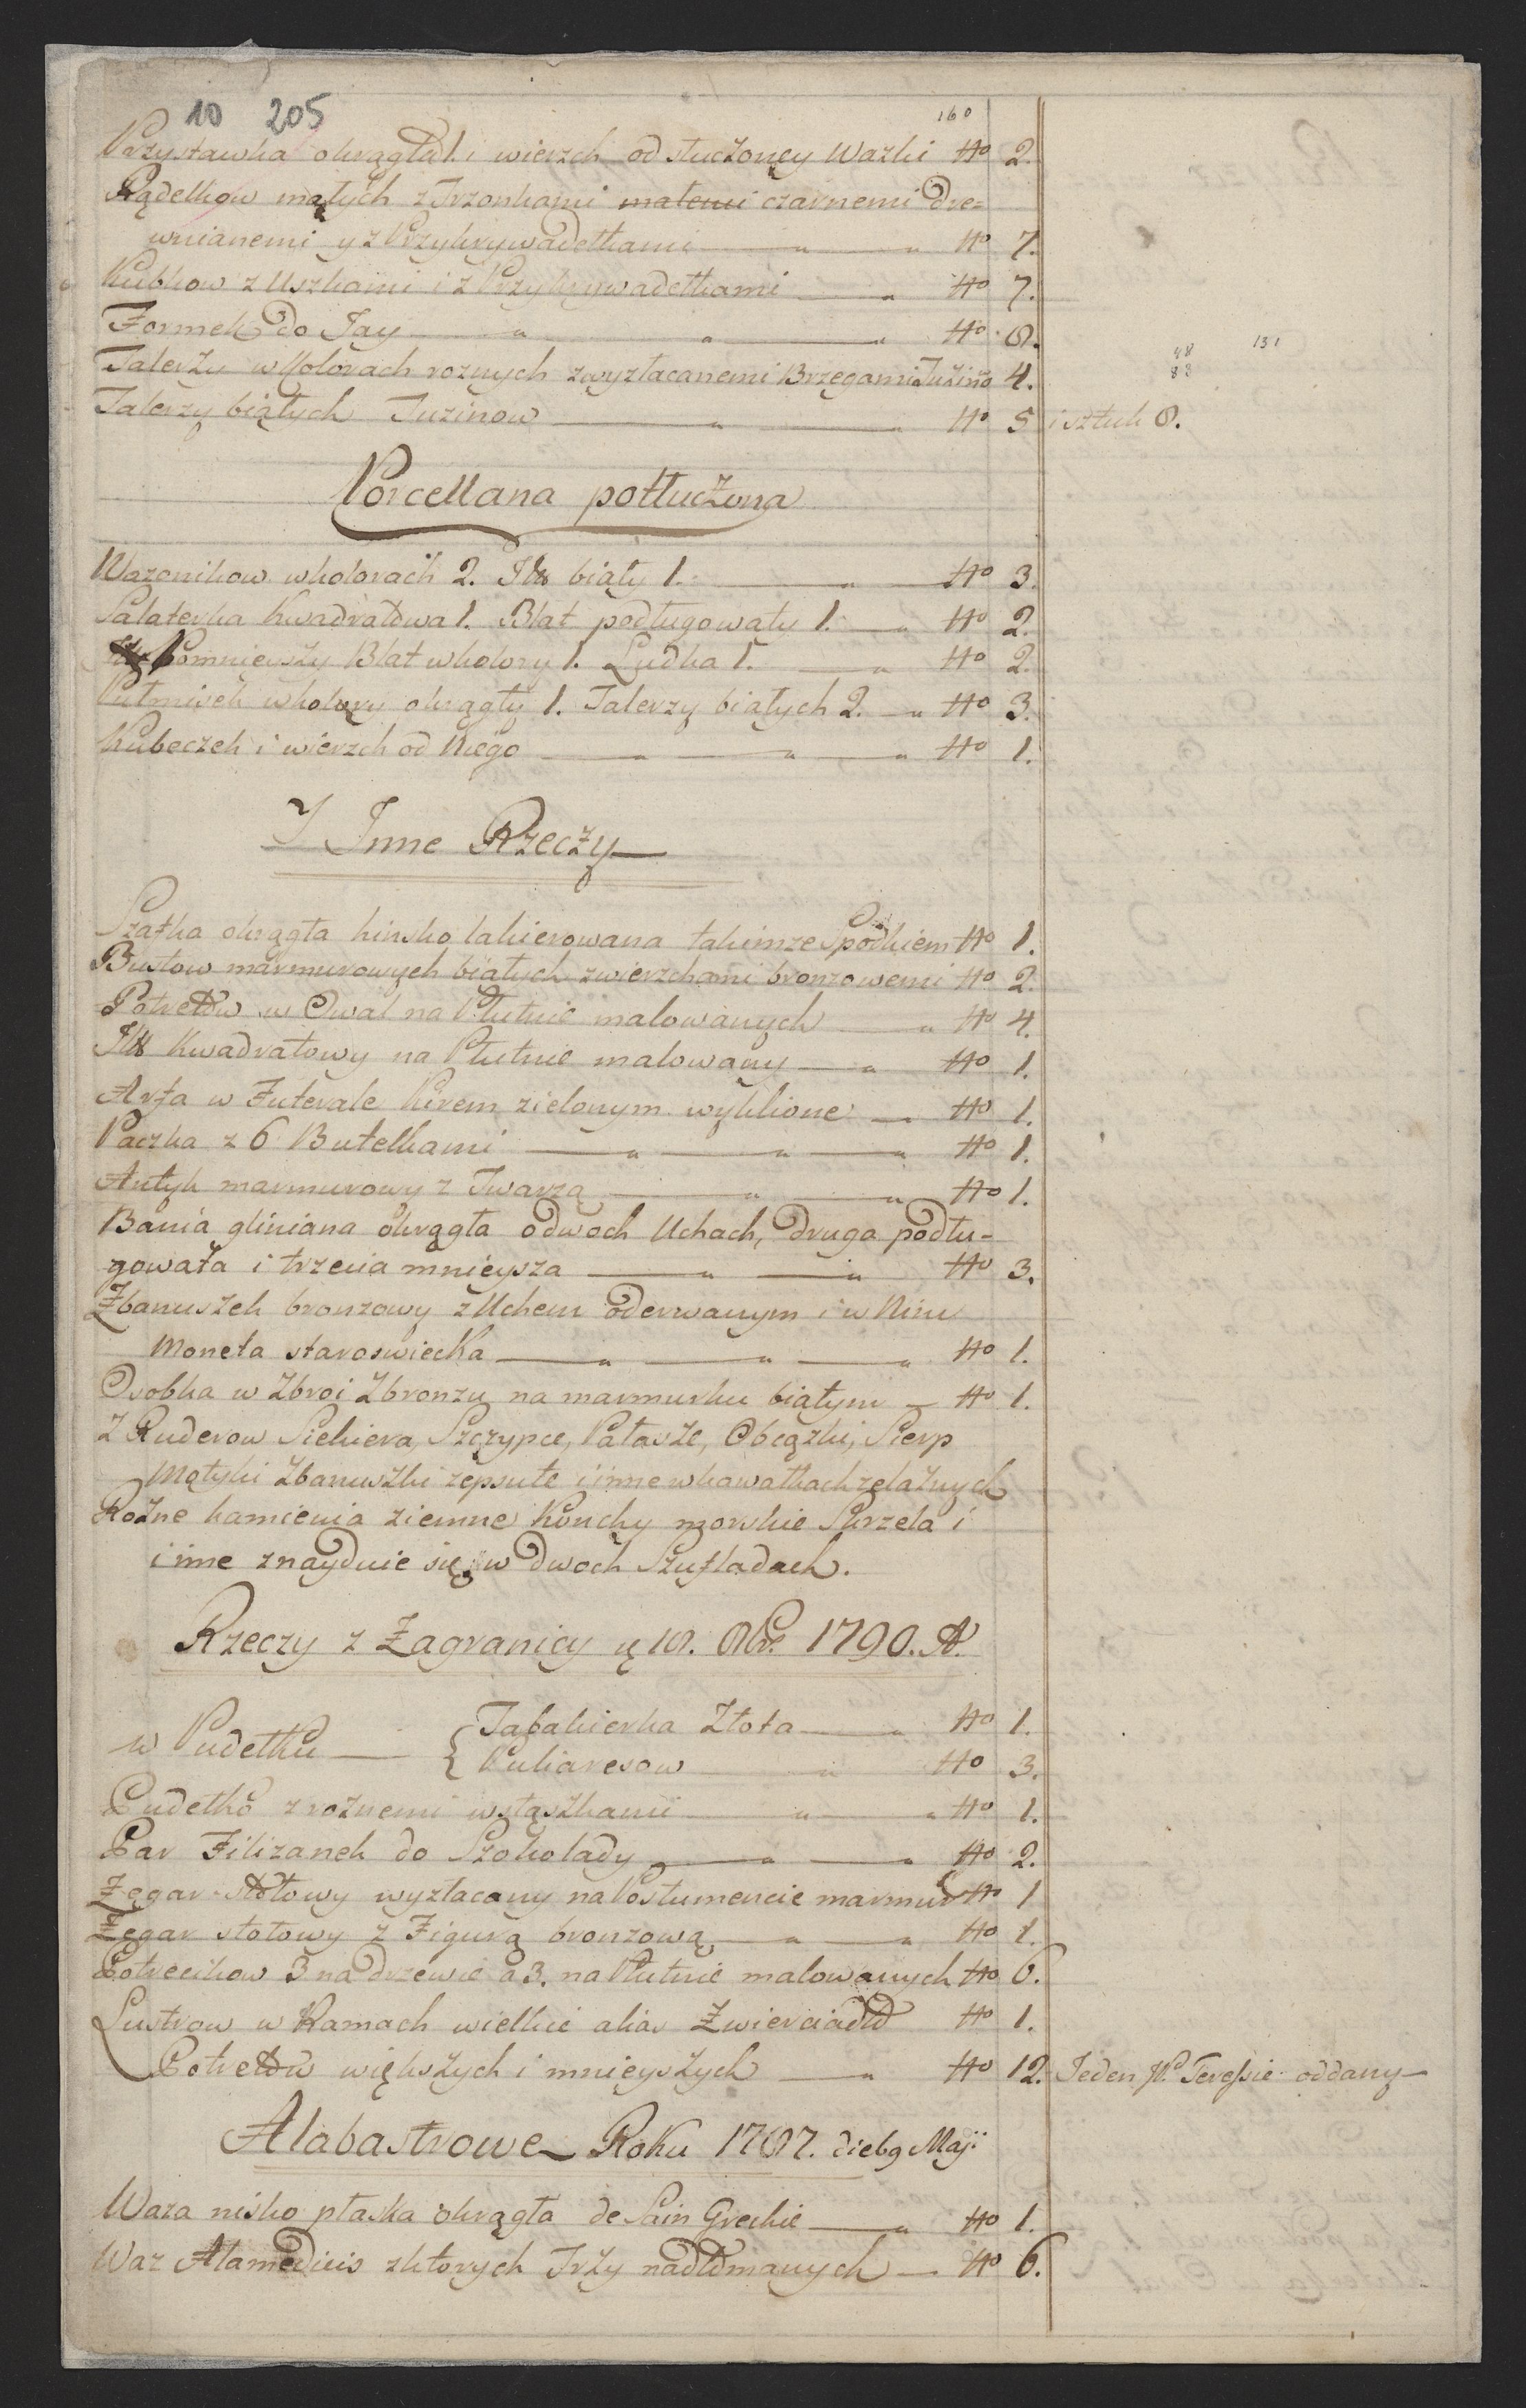 10 205
160
Przystawka okrągła 1. i wierzch od stuczoney Wazki No 2.
Rądelkow małych z Trzonkami małemi czarnemi dre=
wnianemi y z Przykrywadełkami No 7.
Kubkow z Uszkami i z Przykrywadełkami No 7.
Formek do Jay No 8.
48 131
88
Talerzy w Kolorach roznych z wyzłacanemi Brzegami Tuzino 4.
Talerzy białych Tuzinow No 5 i sztuk 8.
Porcellana potłuczona
Wazonikow w kolorach 2. biały 1. No 3.
Salaterka Kwadratowa 1. Blat podługowaty 1. No 2.
Pomnieyszy Blat w kolory 1. Ludka 1. No 2.
Pułmisek w kolory okrągły 1. Talerzy białych 2. No 3.
Kubeczek i wierzch od Niego No 1.
I Inne Rzeczy
Szafka okrągła hinsko lakierowana takimze spodkiem No 1.
Bustow marmurowych białych z wierzchami bronzowemi No 2.
Potretow w Owal na Płutnie malowanych No 4.
Kwadratowy na Płutnie malowany No 1.
Arfa w Futerale Kirem zielonym wyklione No 1.
Paczka z 6 Butelkami No 1.
Antyk marmurowy z Twarzą No 1.
Bania gliniana okrągła o dwoch Uchach, druga podłu-
gowata i trzecia mnieysza No 3.
Zbanuszek bronzowy z Uchem oderwanym i w Nim
Moneta staroswiecka No 1.
Osobka w Zbroi z bronzu na marmurku białym No 1.
Z Ruderow Siekiera, Szczypce, Pałasze, Obcązki, Sierp
Motyki Zbanuszki zepsute i inne w kawałkach zelaznych
Rożne kamienia ziemne Konchy morskie Skrzela i
inne znayduie się w dwoch Szufladach.
Rzeczy z Zagranicy 1790. A.
w Pudełku { Tabakierka Złota No 1.
Puliaresow No 3.
Pudełko z rożnemi wstąszkami No 1.
Par Filizanek do Szokolady No 2.
Zegar stołowy wyzłacany na Postumencie marmur No 1
Zegar stołowy z Figurą bronzową No 1.
Potrecikow 3 na drzewie a 3. na Płutnie malowanych No 6.
Lustrow w Ramach wielkie alias Zwierciadło No 1.
Potretow większych i mnieyszych No 12. Jeden Teressie oddany
Alabastrowe Roku 1787. die 69 Maji
Waza nisko płaska okrągła de Sain Greckie No 1.
Waz Alamedicis z ktorych Trzy nadłomanych No 6.